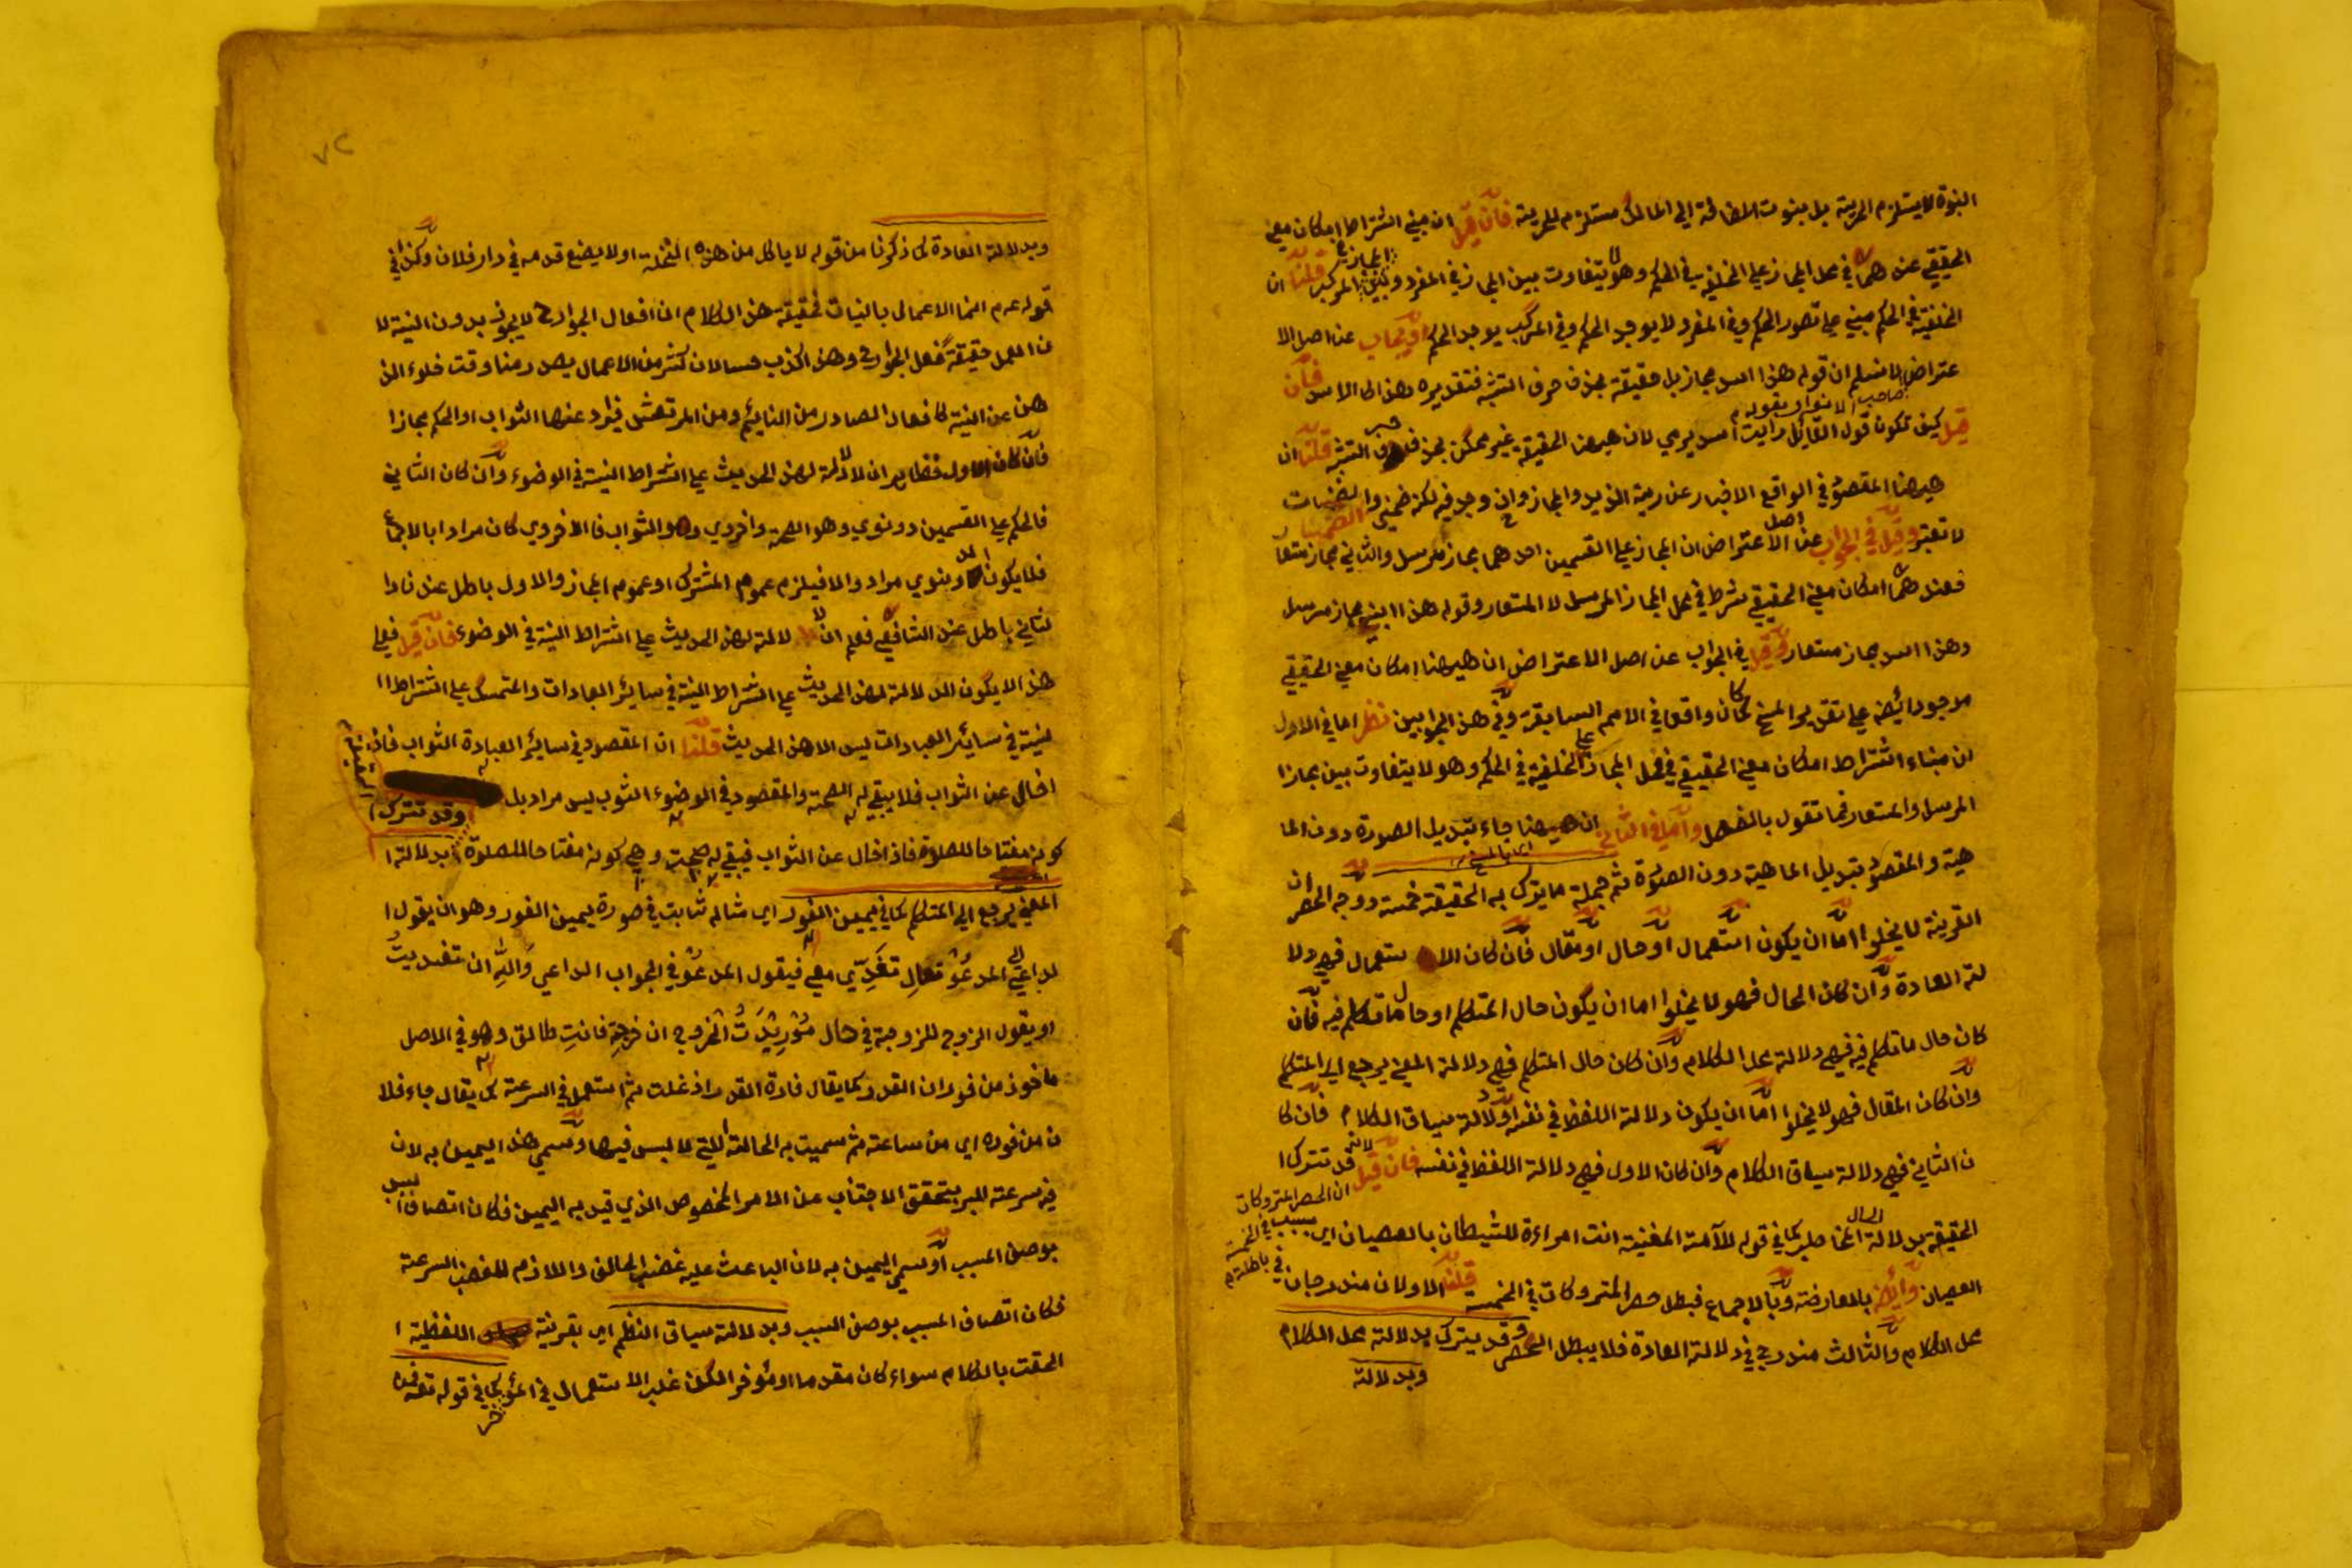 البنوة لا يستلزم الحرية بل بنوت الاضافة الي المالك مستلزم للحرية فان قيل ان مبني اشتراط امكان معني
الحقيقي عندهما في محل المجاز علي الخلفية في الحكم وهو لا يتفاوت بين المجاز في المفرد وبين المجاز في المركب قلنا ان
الخلفية في الحكم مبني علي تصور الحكم وفي المفرد لا يوجد الحكم وفي المركب يوجد الحكم او يجاب عن اصل الا
عتراض لا نسلم ان قوله هذا اسد مجاز بل حقيقة بحذف حرف التشبه فتقديره هذا كالاسد فان
صاحب الانوار بقوله
قيل كيف تكون قول القائل رايت اسد يرمي لان هيهنا الحقيقة غير ممكن بحذف حرف التشبه قلنا ان
هيهنا المقصود في الواقع الاخبار عن رمية الزيد والمجاز وان وجد فيه لكنه ضمني والضمنيات
لا تعتبر وقيل في الجواب عن اصل الاعتراض ان المجاز علي القسمين احدهما مجاز مرسل والثاني مجاز مستعا
فعندهما امكان معني الحقيقي شرط في محل المجاز المرسل لا المستعار وقوله هذا ابني مجاز مرسل
وهذا اسد مجاز مستعار وقيل في الجواب عن اصل الاعتراض ان هيهنا امكان معني الحقيقي
موجود ايضا علي تقدير المسخ كما كان واقعا في الامم السابقة وفي هذين الجوابين نظر اما في الاول
لان مبناء اشتراط امكان معني الحقيقي في محل المجاز علي الخلفية في الحكم وهو لا يتفاوت بين مجاز ا
المرسل والمستعار فما تقول بالفصل واما في الثاني ان هيهنا جاء تبديل الصورة دون الما
اي بالمسخ
هية والمقصود تبديل الماهية دون الصورة ثم جملة ما يترك به الحقيقة خمسة ووجه الحصر ان
القرينة لا يخلوا اما ان يكون استعمال او حال او مقال فان كان الاستعمال فهي دلا
لة العادة وان كان الحال فهو لا يخلوا اما ان يكون حال المتكلم او حال ما تكلم فيه فان
كان حال ما تكلم فيه فهي دلالة محل الكلام وان كان حال المتكلم فهي دلالة المعني يرجع الي المتكلم
وان كان المقال فهو لا يخلوا اما ان يكون دلالة اللفظ في نفسه او دلالة سياق الكلام فان كا
ن الثاني فهي دلالة سياق الكلام وان كان الاول فهي دلالة اللفظ في نفسه فان قيل ان الحصر المتروكات
بسبب في الخمسة
في باطلة لانه قد تترك ا
الحقيقة بدلالة الحال كما في قوله للآمة المغنية انت امراءة للشيطان بالعصيان اي
العصيان وايضا بالمعارضة وبالاجماع فبطل حصر المتروكات في الخمسة قلنا الاولان مندرجان في
محل الكلام والثالث مندرج في دلالة العادة فلا يبطل الحصر وقد يترك بدلالة محل الكلام
وبدلالة
٧٢
وبدلالة العادة كما ذكرنا من قوله لا ياكل من هذه النخلة او لا يضع قدمه في دار فلان وكذا في
قوله عم انما الاعمال بالنيات فحقيقة هذا الكلام ان افعال الجوارح لا يجوز بدون النية لا
ن العمل حقيقة فعل الجوارح وهذا كذب مسالان كثر من الاعمال يصدر منا وقت خلوء الذ
هن عن النية كافعال الصادر من النائم ومن المرتعش فيراد عنها الثواب او الحكم مجازا
فان كان الاول فظاهر ان لا دلالة لهذا الحديث علي اشتراط النية في الوضوء وان كان الثاني
فالحكم علي القسمين دونوي وهو الصحة واخروي وهو الثواب فالاخروي كان مرادا بالاجماع
فلا يكون الدونوي مراد والا فيلزم عموم المشترك او عموم المجاز والاول باطل عندنا وا
لثاني باطل عند الشافعي فعلم ان لا دلالة لهذا الحديث علي اشتراط النية في الوضوء فان قيل فعلي
هذا لا يكون الدلالة لهذا الحديث علي اشتراط النية في سائر العبادات والمتمسك علي اشتراط ا
لنية في سائر العبادات ليس الا هذا الحديث قلنا ان المقصود في سائر العبادة الثواب فاذا
اخال عن الثواب فلا يبقي له الصحة والمقصود في الوضوء الثوب ليس مراد بل
وقد تترك الحقيقة
كونه مفتاحا للصلوة فاذا خال عن الثواب فيبقي له صحة وهي كونه مفتاحا للصلوة بدلالة ا
المعني يرجع الي المتكلم كما في يمين الفور اي مثاله ثابت في صورة يمين الفور وهو ان يقول ا
لداعي الي المدعو تعال تغدي معي فيقول المدعو في الجواب الداعي والله ان تغديت
او يقول الزوج للزوجة في حال مريدت الخروج ان خرجت فانت طالق وهو في الاصل
ماخوذ من فوران القدر كما يقال فارة القدر اذ غلت ثم استعمل في السرعة كما يقال جاء فلا
ن من فوره اي من ساعته ثم سميت به الحالة التي لا لبس فيها وسمي هذا اليمين به لان
في سرعته البر يتحقق الاجتناب عن الامر المخصوص الذي قيد به اليمين فكان اتصاف السبب
بوصف المسبب او سمي اليمين به لان الباعث عليه غضب الحالف واللازم للغضب السرعة
فكان اتصاف المسبب بوصف السبب وبدلالة سياق النظم اي بقرينة اللفظية ا
لتحقت بالكلام سواء كان مقدما او مؤخر الكن غلب الاستعمال في المؤخر كما في قوله تعه فمن